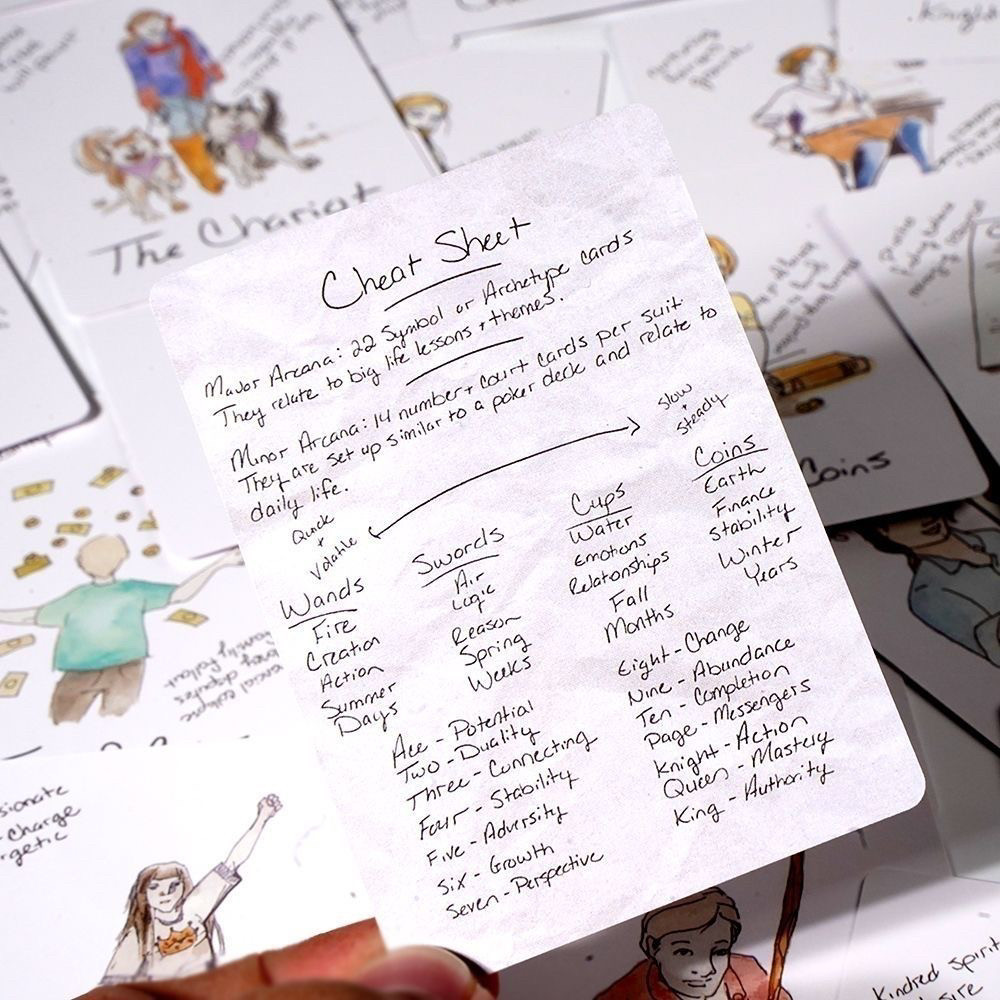 Cheat Sheet
Major Arcana: 22 Symbol or Archetype cards
They relate to big life lessons + themes.
Minor Arcana: 14 number + court cards per suit
They are set up similar to a poker deck and relate to
daily life.
Quick
+
Volatile
Slow
+
Steady
Wands
Fire
Creation
Action
Summer
Days
Swords
Air
Logic
Reason
Spring
Weeks
Cups
Water
Emotions
Relationships
Fall
Months
Coins
Earth
Finance
Stability
Winter
Years
Ace - Potential
Two - Duality
Three - Connecting
Four - Stability
Five - Adversity
Six - Growth
Seven - Perspective
Eight - Change
Nine - Abundance
Ten - Completion
Page - Messengers
Knight - Action
Queen - Mastery
King - Authority
The Chariot
Knight
Coins
Kindred Spirit